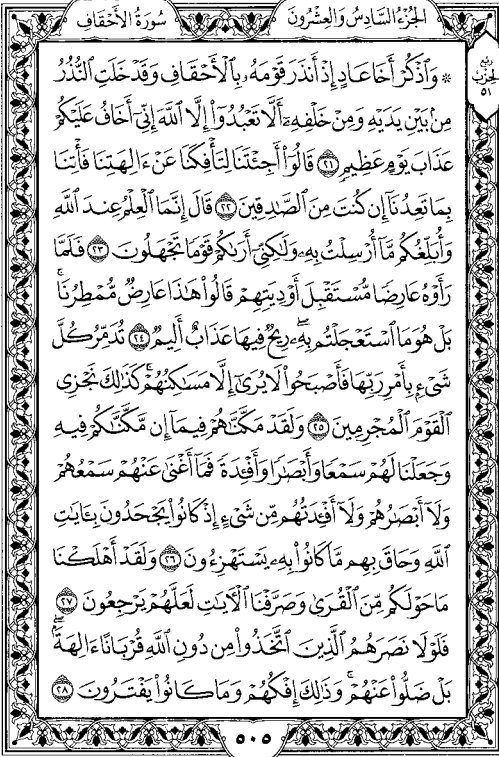 الجُزْءُ السَّادِسُ وَالعِشْرُونَ سُورَةُ الأَحْقَافِ
ربع
الحزب
٥١
۞ وَٱذْكُرْ أَخَا عَادٍ إِذْ أَنذَرَ قَوْمَهُۥ بِٱلْأَحْقَافِ وَقَدْ خَلَتِ ٱلنُّذُرُ
مِنۢ بَيْنِ يَدَيْهِ وَمِنْ خَلْفِهِۦٓ أَلَّا تَعْبُدُوٓا۟ إِلَّا ٱللَّهَ إِنِّىٓ أَخَافُ عَلَيْكُمْ
عَذَابَ يَوْمٍ عَظِيمٍ ٢١ قَالُوٓا۟ أَجِئْتَنَا لِتَأْفِكَنَا عَنْ ءَالِهَتِنَا فَأْتِنَا
بِمَا تَعِدُنَآ إِن كُنتَ مِنَ ٱلصَّٰدِقِينَ ٢٢ قَالَ إِنَّمَا ٱلْعِلْمُ عِندَ ٱللَّهِ
وَأُبَلِّغُكُم مَّآ أُرْسِلْتُ بِهِۦ وَلَٰكِنِّىٓ أَرَىٰكُمْ قَوْمًا تَجْهَلُونَ ٢٣ فَلَمَّا
رَأَوْهُ عَارِضًا مُّسْتَقْبِلَ أَوْدِيَتِهِمْ قَالُوا۟ هَٰذَا عَارِضٌ مُّمْطِرُنَا ۚ
بَلْ هُوَ مَا ٱسْتَعْجَلْتُم بِهِۦ ۖ رِيحٌ فِيهَا عَذَابٌ أَلِيمٌ ٢٤ تُدَمِّرُ كُلَّ
شَىْءٍۭ بِأَمْرِ رَبِّهَا فَأَصْبَحُوا۟ لَا يُرَىٰٓ إِلَّا مَسَٰكِنُهُمْ ۚ كَذَٰلِكَ نَجْزِى
ٱلْقَوْمَ ٱلْمُجْرِمِينَ ٢٥ وَلَقَدْ مَكَّنَّٰهُمْ فِيمَآ إِن مَّكَّنَّٰكُمْ فِيهِ
وَجَعَلْنَا لَهُمْ سَمْعًا وَأَبْصَٰرًا وَأَفْـِٔدَةً فَمَآ أَغْنَىٰ عَنْهُمْ سَمْعُهُمْ
وَلَآ أَبْصَٰرُهُمْ وَلَآ أَفْـِٔدَتُهُم مِّن شَىْءٍ إِذْ كَانُوا۟ يَجْحَدُونَ بِـَٔايَٰتِ
ٱللَّهِ وَحَاقَ بِهِم مَّا كَانُوا۟ بِهِۦ يَسْتَهْزِءُونَ ٢٦ وَلَقَدْ أَهْلَكْنَا
مَا حَوْلَكُم مِّنَ ٱلْقُرَىٰ وَصَرَّفْنَا ٱلْءَايَٰتِ لَعَلَّهُمْ يَرْجِعُونَ ٢٧
فَلَوْلَا نَصَرَهُمُ ٱلَّذِينَ ٱتَّخَذُوا۟ مِن دُونِ ٱللَّهِ قُرْبَانًا ءَالِهَةًۢ ۖ
بَلْ ضَلُّوا۟ عَنْهُمْ ۚ وَذَٰلِكَ إِفْكُهُمْ وَمَا كَانُوا۟ يَفْتَرُونَ ٢٨
٥٠٥